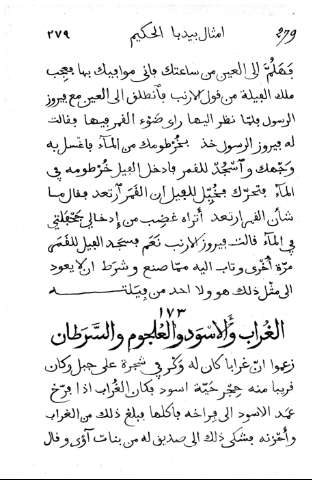 ٢٧٩ امثال بيدبا الحكيم 279
فهلمّ الى العين من ساعتك فاني موافيك بها فعجب
ملك الفيلة من قول الارنب فانطلق الى العين مع فيروز
الرسول فلمّا نظر اليها راى ضوء القمر فيها فقالت
له فيروز الرسول خذ بخرطومك من المآء فاغسل به
وجهك واسجد للقمر فادخل الفيل خرطومه في
المآء فتحرك فخُيّل للفيل ان القمر ارتعد فقال ما
شأن القمر ارتعد أتراه غضب من إدخالي جحفلتي
في المآء قالت فيروز الارنب نعم فسجد الفيل للقمر
مرّة أخرى وتاب اليه ممّا صنع وشرط ان لا يعود
الى مثل ذلك هو ولا احد من فيلته
١٧٣
الغُراب والاسود والعلجوم والسَّرَطان
زعموا انّ غرابا كان له وكر في شجرة على جبل وكان
قريبا منه جحر حيّة اسود فكان الغُراب اذا فرّخ
عمد الاسود الى فراخه فاكلها فبلغ ذلك من الغراب
وأحزنه فشكى ذلك الى صديق له من بنات آوى وقال